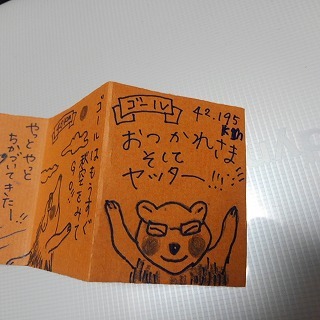 ゴール
42.195
km
おつかれさま
そして
ヤッター!!!
ゴールはもうすぐ
やっとやっと
ちかづいてきたー!!